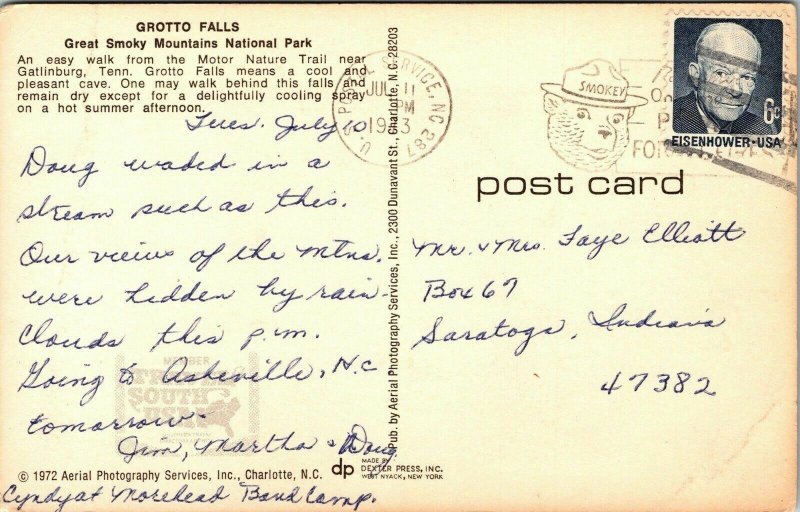 GROTTO FALLS
Great Smoky Mountains National Park
An easy walk from the Motor Nature Trail near
Gatlinburg, Tenn. Grotto Falls means a cool and
pleasant cave. One may walk behind this falls and
remain dry except for a delightfully cooling spray
on a hot summer afternoon.
Tues. July 10
Doug waded in a
stream such as this.
Our views of the Mtns.
were hidden by rain-
clouds this p.m.
Going to Asheville, N.C
tomorrow.
Jim, Martha & Doug
© 1972 Aerial Photography Services, Inc., Charlotte, N.C.
Cyndy at Morehead Band Camp.
MEMBER
TRAVEL
SOUTH
USA
dp
MADE BY
DEXTER PRESS, INC.
WEST NYACK, NEW YORK
Pub. by Aerial Photography Services, Inc., 2300 Dunavant St., Charlotte, N.C. 28203
U.S. POSTAL SERVICE, NC 287
JUL 11
PM
1973
SMOKEY
EISENHOWER·USA
6c
post card
Mr. & Mrs. Faye Elliott
Box 67
Saratoga, Indiana
47382